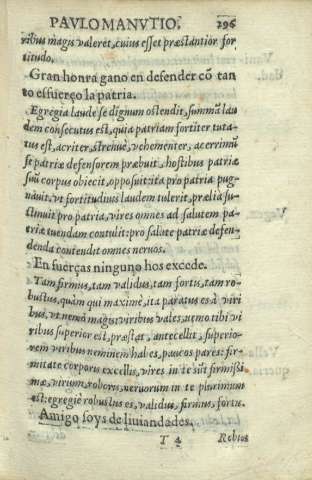 PAVLO MANVTIO. 296
ribus magis valeret, cuius esset præstantior for
titudo.
Gran honra gano en defender cõ tan
to esfuerço la patria.
Egregia laude se dignum ostendit, summã lau
dem consecutus est, quia patriam fortiter tuta-
tus est, acriter, strenuè, vehementer, acerrimũ
se patriæ defensorem præbuit, hostibus patriæ
suũ corpus obiecit, opposuit: ita pro patria pug-
nauit, vt fortitudinis laudem tulerit, prælia su-
stinuit pro patria, vires omnes ad salutem pa-
triæ tuendam contulit: pro salute patriæ defen-
denda contendit omnes neruos.
En fuerças ninguno hos excede.
Tam firmus, tam validus, tam fortis, tam ro-
bustus, quàm qui maximè, ita paratus es à viri
bus, vt nemò magis: viribus vales, nemo tibi vi
ribus superior est, præstat, antecellit, superio-
rem viribus neminem habes, paucos pares: fir-
mitate corporis excellis, vires in te sũt firmissi
mæ, virium, roboris, neruorum in te plurimum
est: egregiè robustus es, validus, firmus, fortis.
Amigo soys de liuiandades.
T 4 Robius